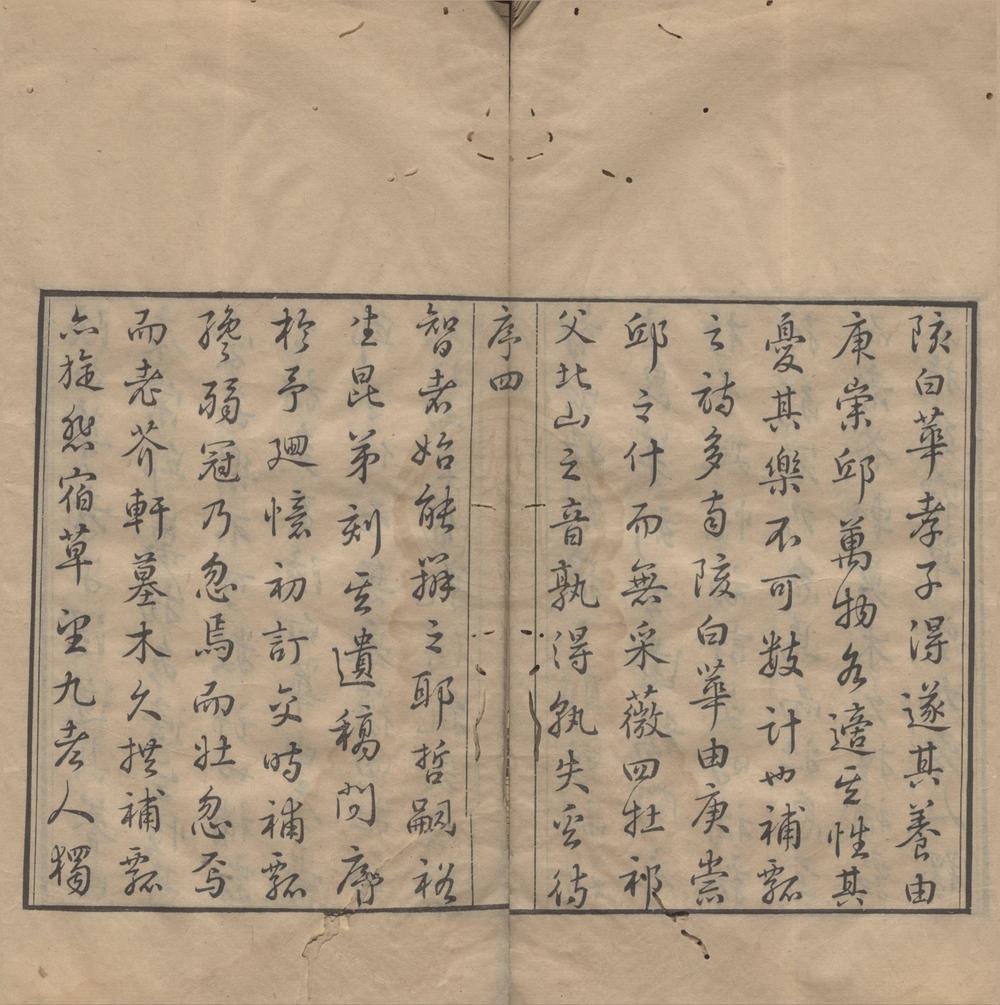 陔白華孝子得遂其養由
庚崇邱萬物各適其性其
憂其樂不可數計也補瓢
之詩多南陔白華由庚崇
邱之什而無采薇四牡祁
父北山之音孰得孰失奚待
序四
智者始能辯之耶哲嗣裕
生昆弟刻其遺稿問序
於予廻憶初訂交時補瓢
纔弱冠乃忽焉而壯忽焉
而老芥軒墓木久拱補瓢
亦旋悲宿草望九老人獨